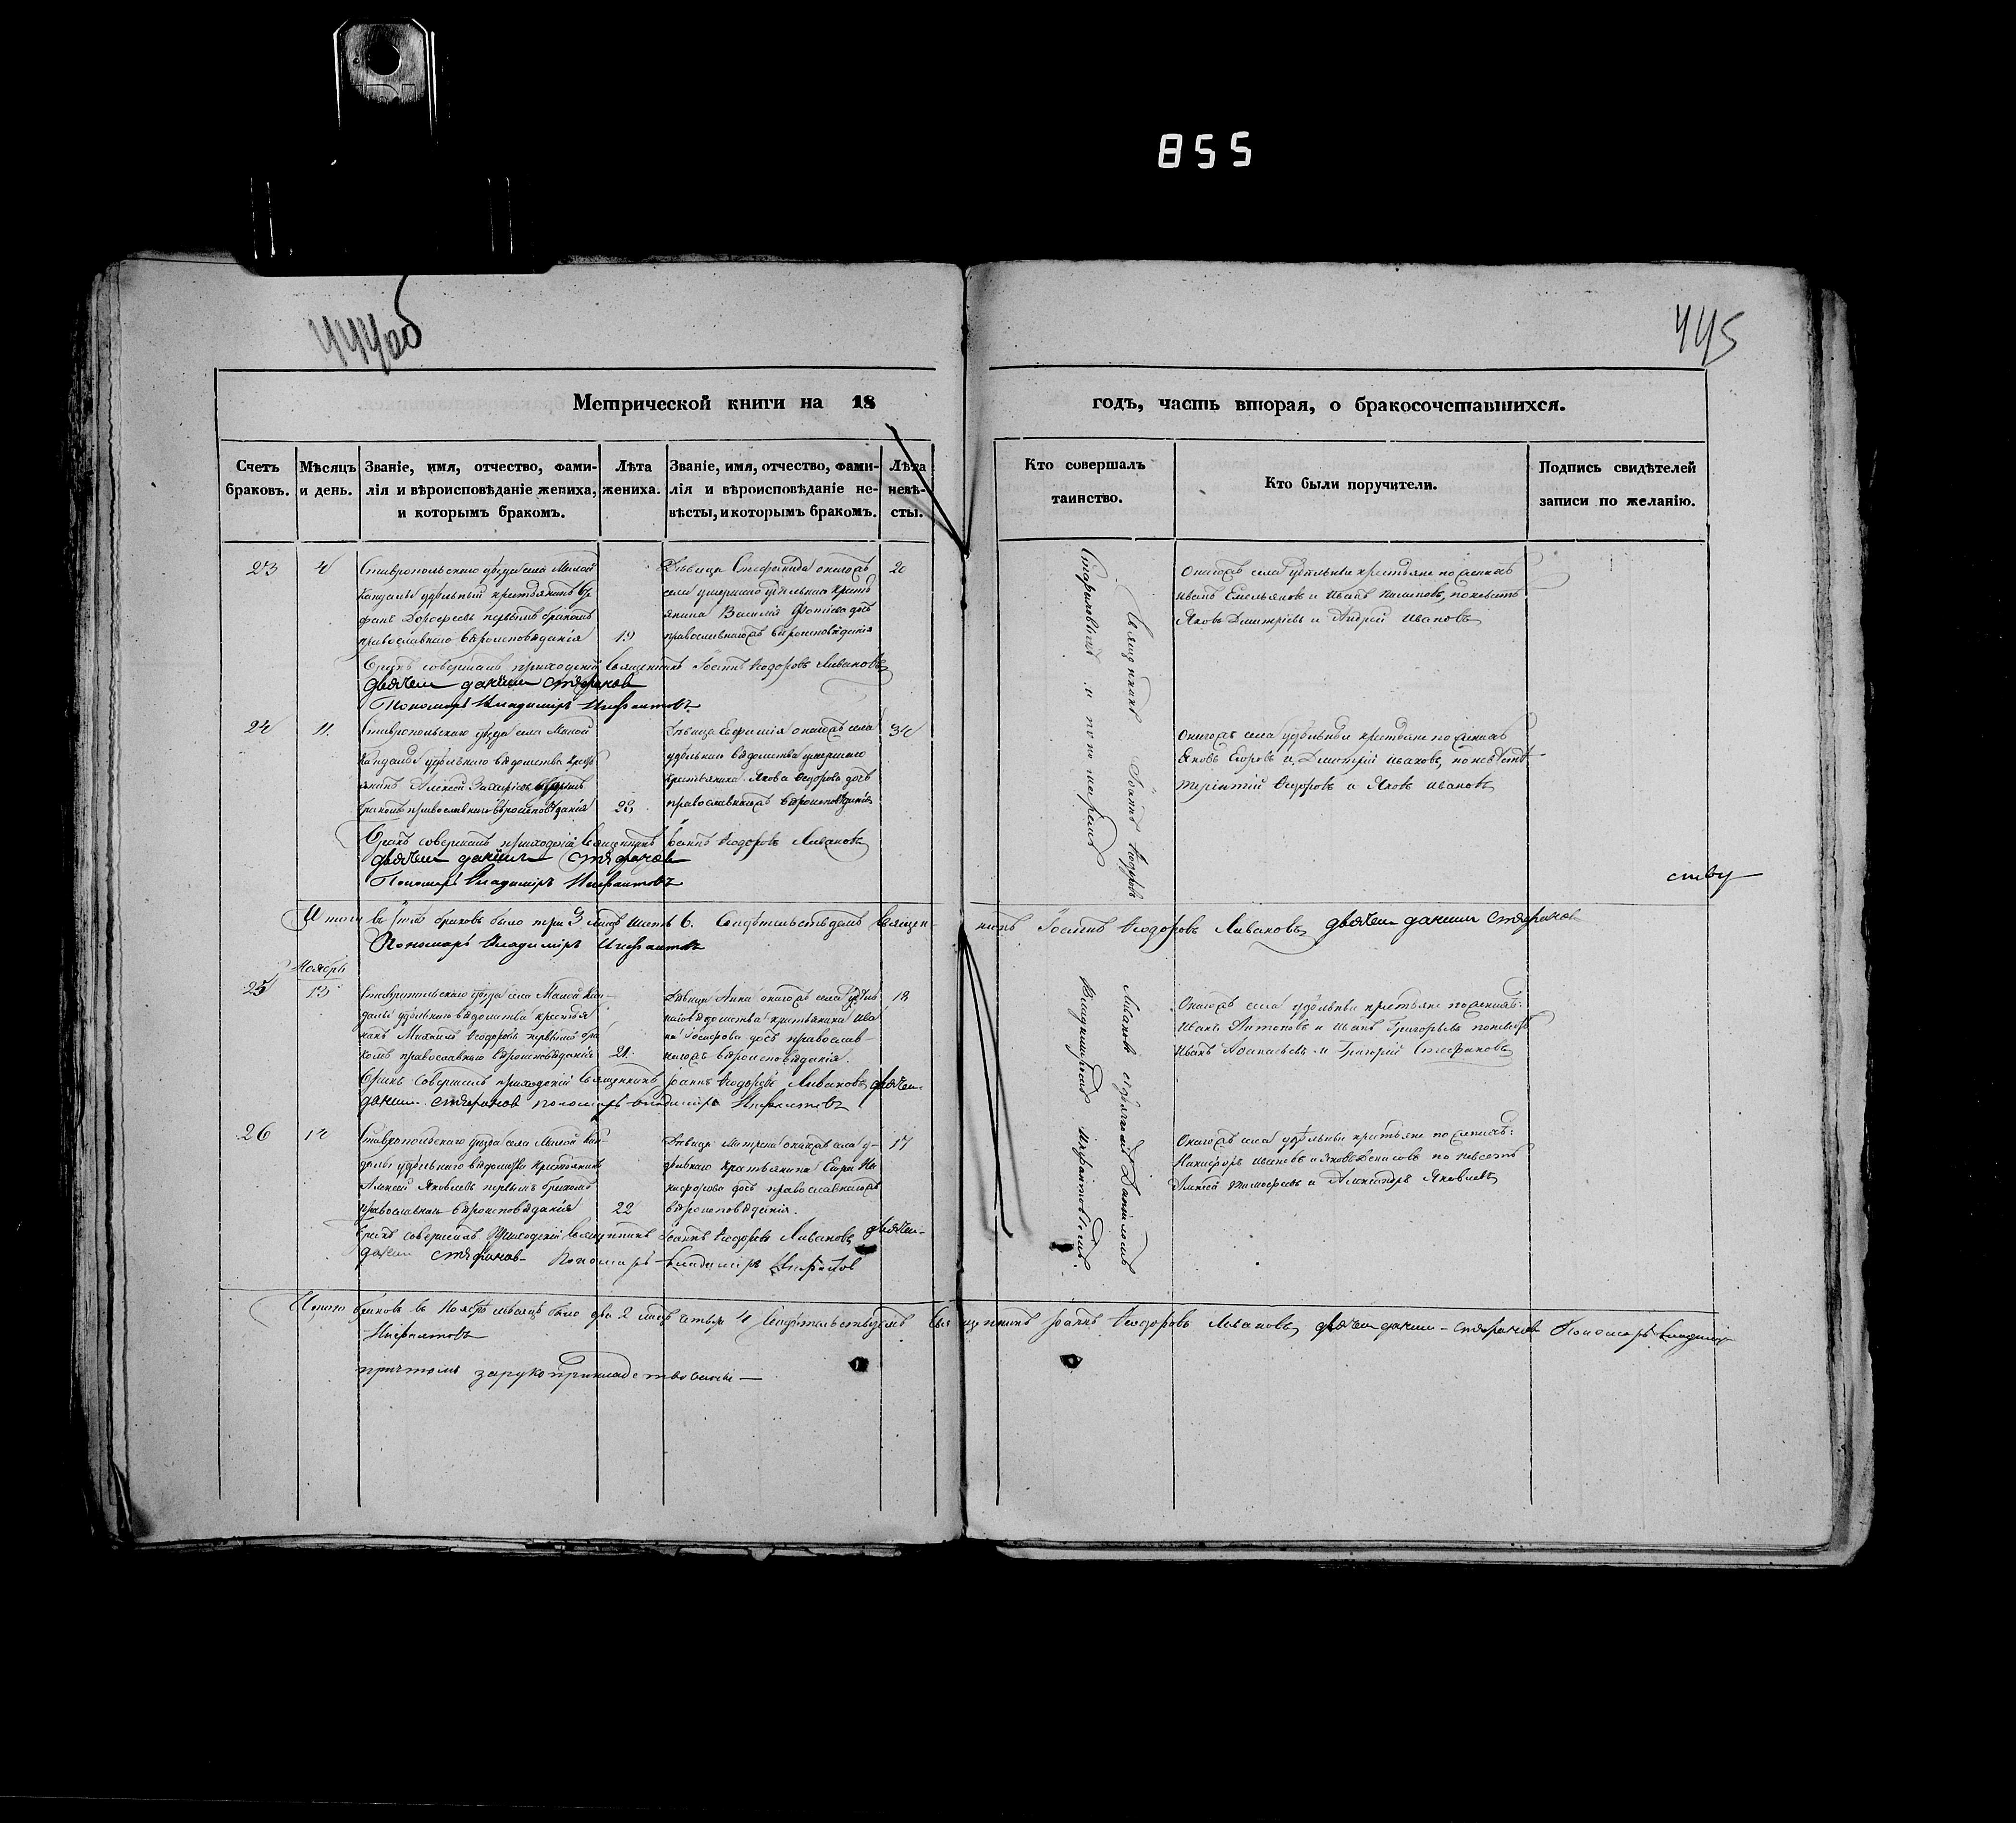 855
444об
445
Метрической книги на 18
годъ, часть вторая, о бракосочетавшихся.
Счетъ браковъ.
Мѣсяцъ и день.
Званіе, имя, отчество, фами-
лія и вѣроисповѣданіе жениха,
и которымъ бракомъ.
Лѣта жениха.
Званіе, имя, отчество, фами-
лія и вѣроисповѣданіе не-
вѣсты, и которымъ бракомъ.
Лѣта невѣ-
сты.
Кто совершалъ
таинство.
Кто были поручители.
Подпись свидѣтелей
записи по желанію.
23
4
Ставропольскаго уѣзда села Малой
Кандалы удѣльный крестьянинъ
Дорофеевъ первымъ бракомъ
православнаго вѣроисповѣданія
19
Дѣвица Стефанида онагожъ
села умершаго удѣльнаго кресть
янина Василія Фотіева дочь
православнагожъ вѣроисповѣданія
20
Онагожъ села удѣльные крестьяне по женихѣ
Иванъ Емельяновъ и Иванъ, по невѣстѣ
Яковъ Дмитріевъ и Андрей Ивановъ
Бракъ совершалъ приходскій Священникъ Іоаннъ Ѳеодоровъ Ливановъ
дьячекъ данилъ стефановъ
Пономарь Владиміръ Инфантовъ
24
11.
Ставропольскаго уѣзда села Малой
Кандалы удѣльнаго вѣдомства кресть
янинъ Алексей Захаріевъ вторымъ
бракомъ православнаго вѣроисповѣданія
23
Дѣвица Евфимія онагожъ села
удѣльнаго вѣдомства умершаго
крестьянина Якова Ѳедорова дочь
православнагожъ вѣроисповѣданія
34
Онагожъ села удѣльные крестьяне по женихѣ
Яковъ Егоровъ и Дмитрій Ивановъ, по невѣстѣ
Терентій Ѳедоровъ и Яковъ Ивановъ
Бракъ совершалъ приходскій Священникъ Іоаннъ Ѳеодоровъ Ливановъ
дьячекъ данилъ стефановъ
Пономарь Владиміръ Инфантовъ
ству
Итого въ Іюлѣ браковъ было три 3 лицъ шесть 6. Свидѣтельствуемъ Священ-
никъ Іоаннъ Ѳеодоровъ Ливановъ дьячекъ данилъ стефановъ
Пономарь Владиміръ Инфантовъ
Ноябрь
25
13
Ставропольскаго уѣзда села Малой Кан-
далы удѣльнаго вѣдомства крестья
нинъ Михаилъ Ѳеодоровъ первымъ бра
комъ православнаго вѣроисповѣданія
21.
Дѣвица Анна онагожъ села удѣль
наго вѣдомства крестьянина Ива
на Іосифова дочь православ-
нагожъ вѣроисповѣданія.
18
Онагожъ села удѣльные крестьяне по женихѣ:
Иванъ Антоновъ и Иванъ Григорьевъ по невѣстѣ
Иванъ Аѳанасьевъ и Григорій Стефановъ
Бракъ совершалъ приходскій Священникъ Іоаннъ Ѳеодоровъ Ливановъ, дьячекъ
данилъ стефановъ пономарь владиміръ Инфантовъ
26
14
Ставропольскаго уѣзда села Малой Кан-
далы удѣльнаго вѣдомства крестьянинъ
Алексей Яковлевъ первымъ бракомъ
православнаго вѣроисповѣданія
22
Дѣвица Матрена онагожъ села у-
дѣльнаго крестьянина Егора Ни
кифорова дочь православнагожъ
вѣроисповѣданія.
17
Онагожъ села удѣльные крестьяне по женихѣ:
Никифоръ Ивановъ и Яковъ Денисовъ по невѣстѣ
Алексѣй Тимофеевъ и Александръ Яковлевъ
Бракъ совершалъ Приходскій Священникъ Іоаннъ Ѳеодоровъ Ливановъ дьячекъ
данилъ стефановъ Пономарь Владиміръ Инфантовъ
Священникъ Іоаннъ Ѳеодоровъ Ливановъ съ дьячкомъ Даниломъ
Стефановымъ и пономаремъ Владиміромъ Инфантовымъ.
Итого браковъ въ Ноябрѣ мѣсяцѣ было два 2 лицъ четыре 4 Свидѣтельствуемъ Священникъ Іоаннъ Ѳеодоровъ Ливановъ, дьячекъ данилъ стефановъ Пономарь Владиміръ
Инфантовъ
причтомъ зарукоприкладствована